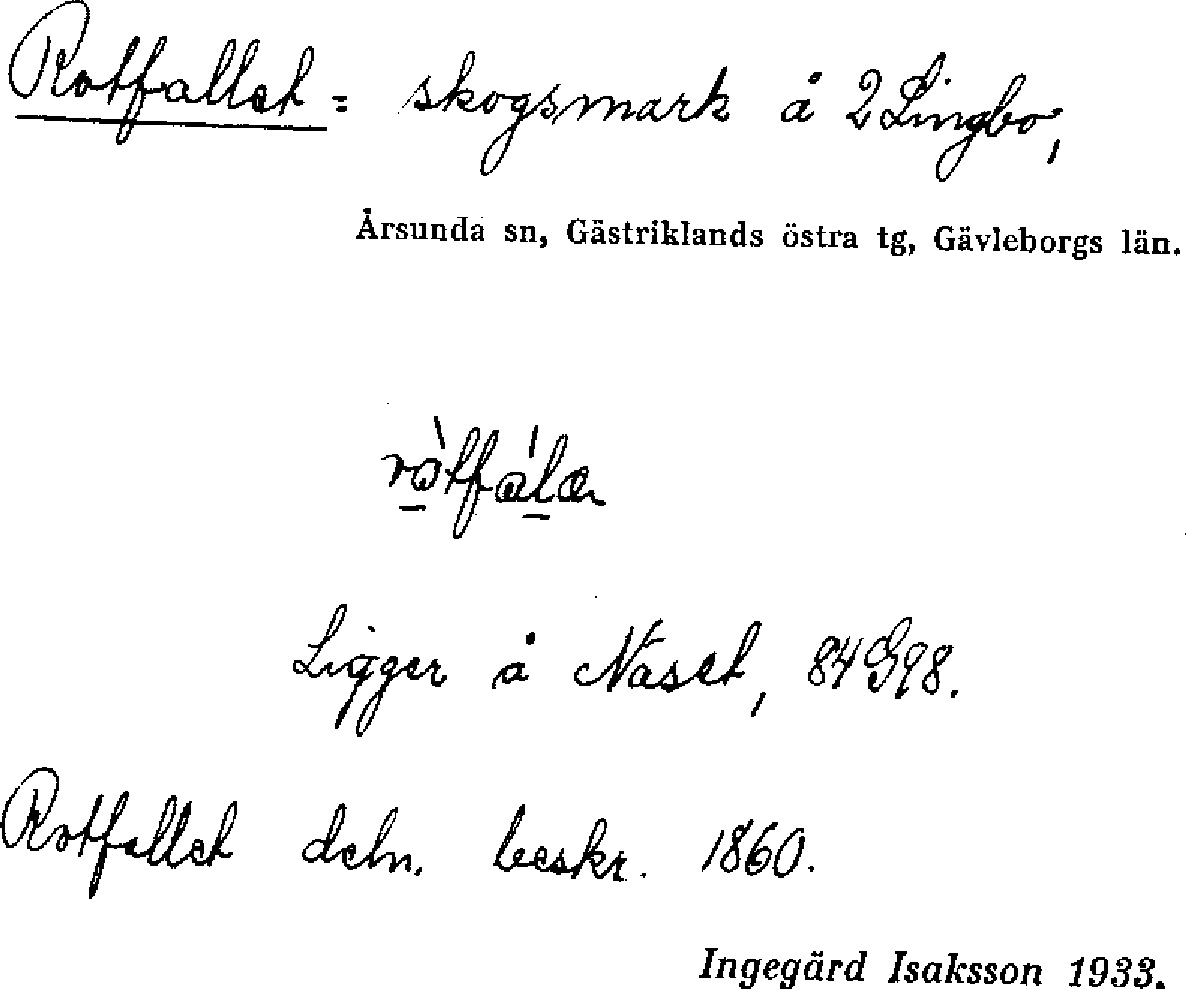 Rotfallet = skogsmark å 2 Lingbo,
Årsunda sn, Gästriklands östra tg, Gävleborgs län.
Ligger å Näset, 84G98.
Rotfallet deln. beskr. 1860.
Ingegärd Isaksson 1933.